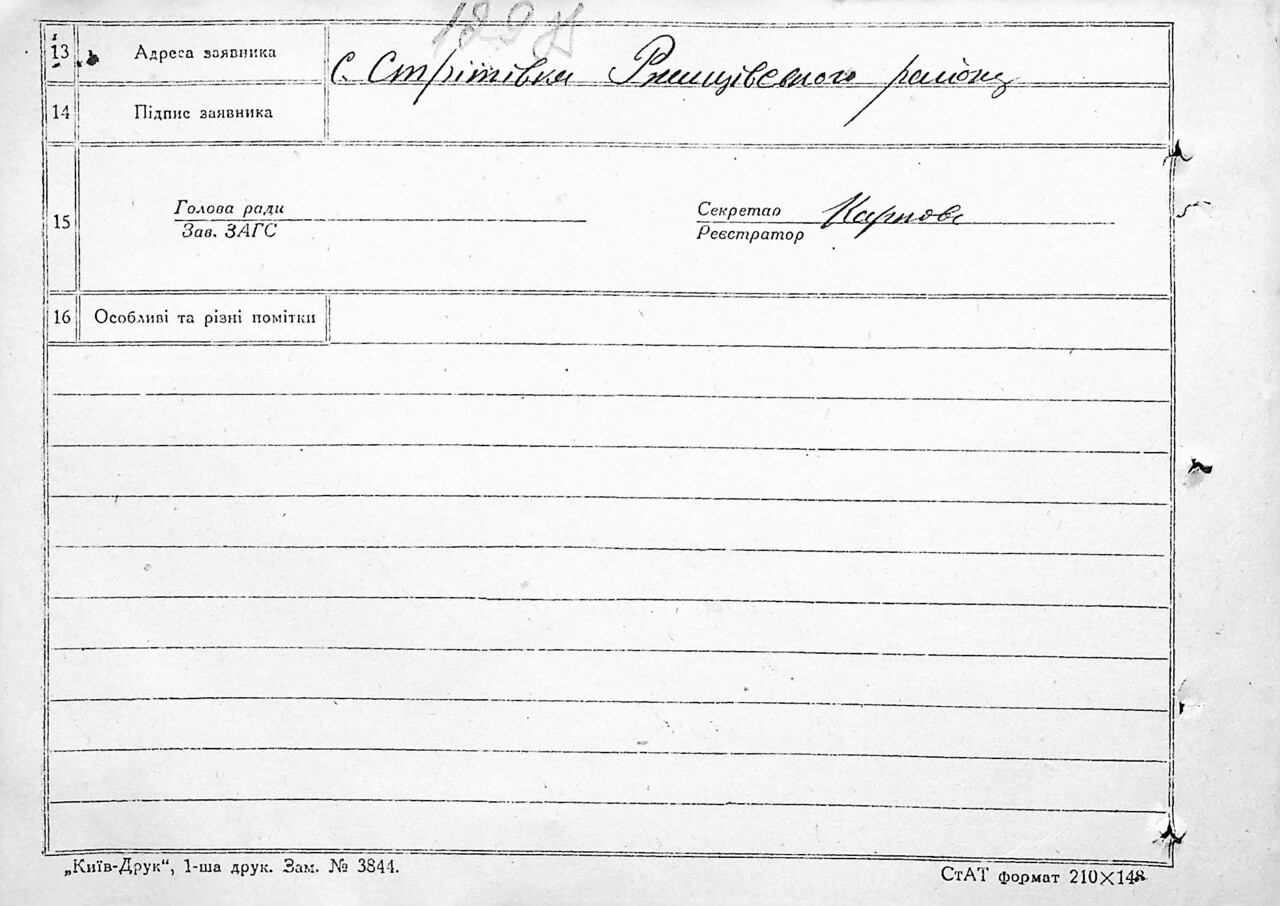 13 Адреса заявника С. Стрітівка Ржищівського району
14 Підпис заявника
Голова ради
Секретар
15
Зав. ЗАГС
Реєстратор
16 Особливі та різні помітки
„Київ-Друк“, 1-ша друк. Зам. № 3844.
СтАТ формат 210×148